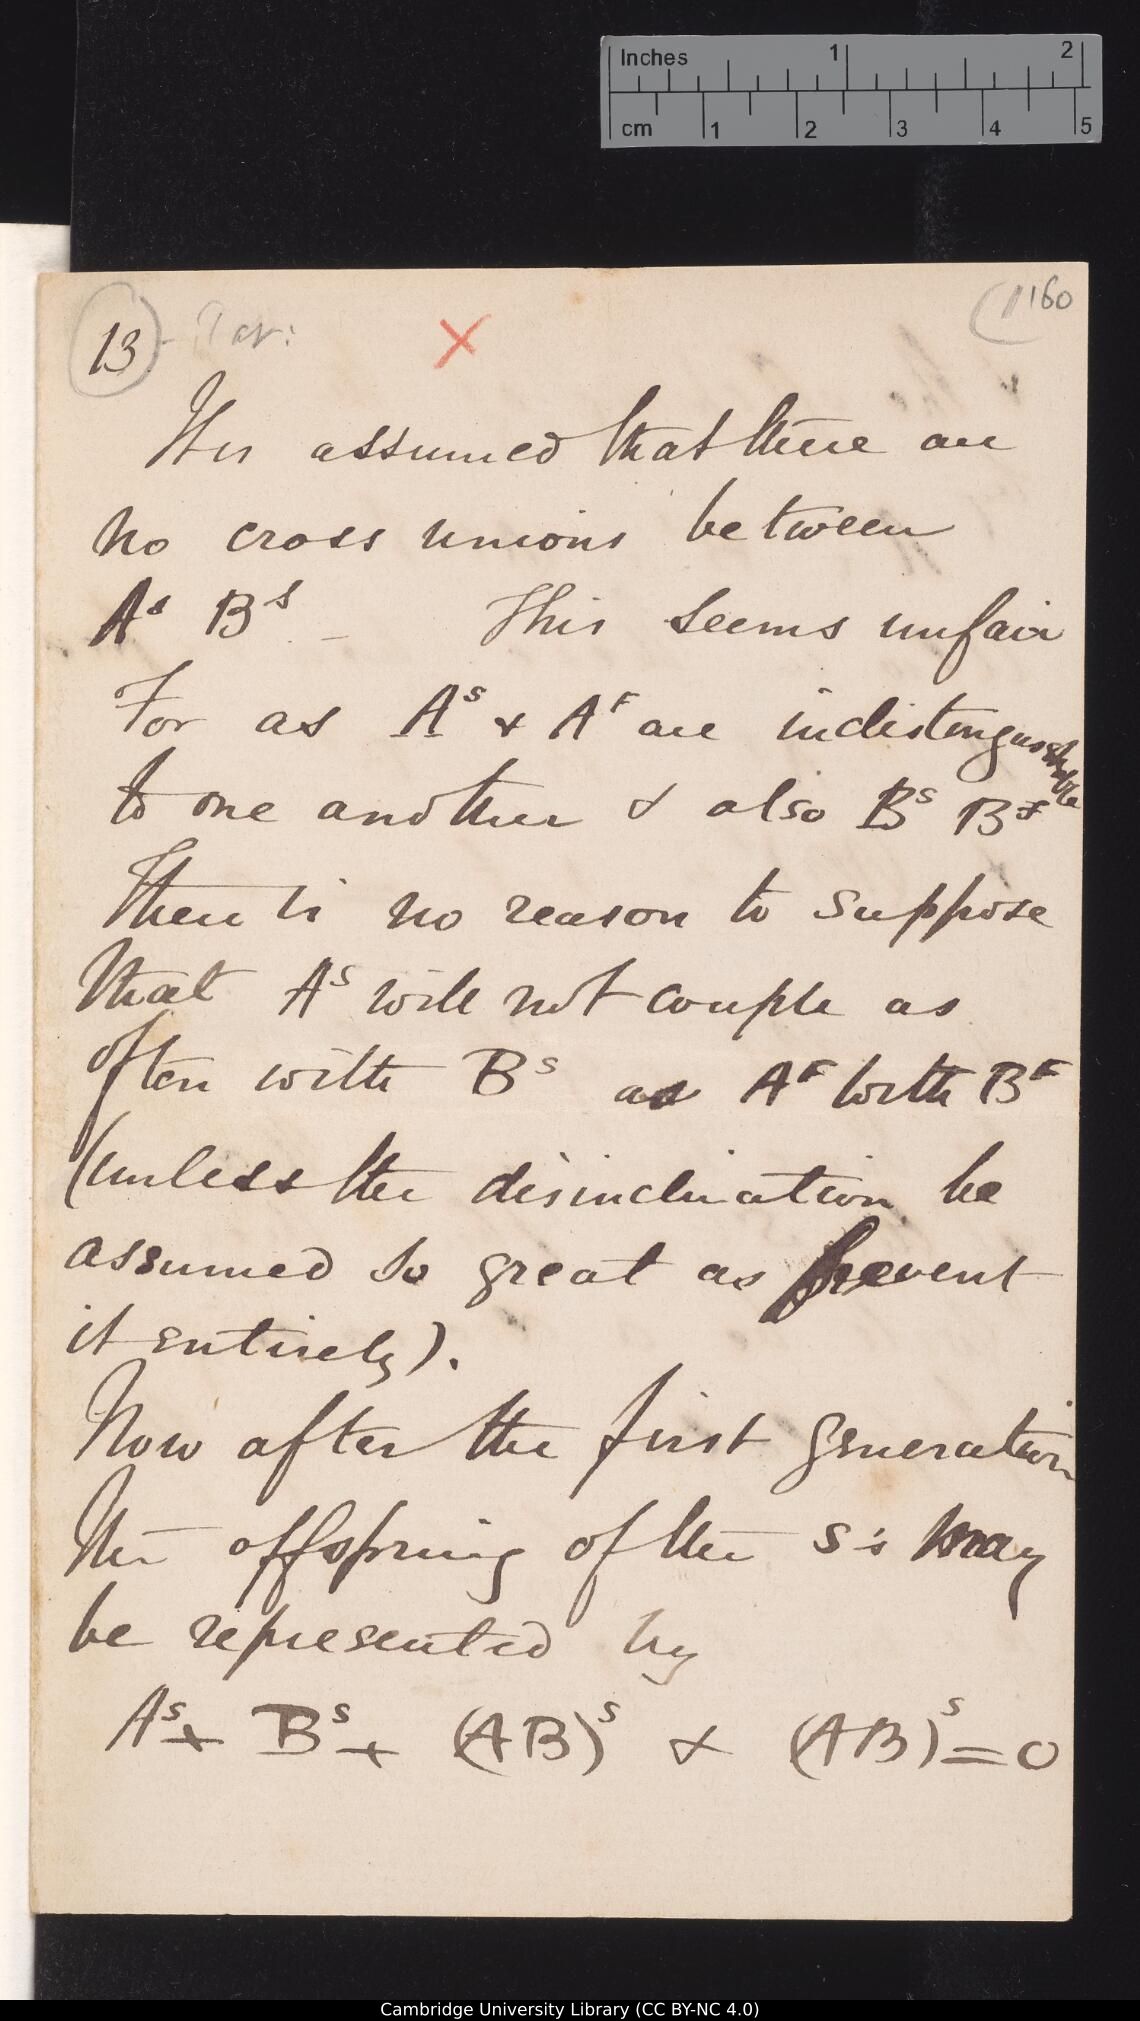 Inches 1 2
cm 1 2 3 4 5
160
13
It is assumed that there are
no cross unions between
Aˢ Bˢ – This seems unfair
For as Aˢ & Aᶠ are indistinguishable
to one another & also Bˢ Bᶠ
There is no reason to suppose
that Aˢ will not couple as
often with Bˢ as Aᶠ with Bᶠ
(unless the disinclination be
assumed so great as prevent
it entirely).
Now after the first generation
the offspring of the s's may
be represented by
Aˢ + Bˢ + (AB)ˢ & (AB)ˢ = 0
Cambridge University Library (CC BY-NC 4.0)